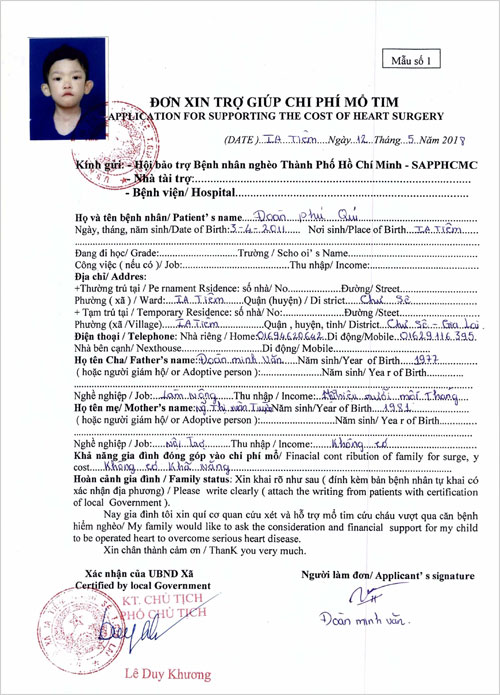 Mẫu số 1
ĐƠN XIN TRỢ GIÚP CHI PHÍ MỔ TIM
APPLICATION FOR SUPPORTING THE COST OF HEART SURGERY
(DATE) IA Tiêm Ngày 12 Tháng 5 2018
Kính gửi: - Hội bảo trợ Bệnh nhân nghèo Thành Phố Hồ Chí Minh - SAPPHCMC
- Nhà tài trợ:
- Bệnh viện/ Hospital
Họ và tên bệnh nhân/ Patient' s name Đoàn phú Quí
Ngày, tháng, năm sinh/Date of Birth: 3-4-2011 Nơi sinh/Place of Birth IA Tiêm
Đang đi học/ Grade: Trường / Scho oi' s Name
Công việc ( nếu có )/ Job: Thu nhập/ Income:
Địa chỉ/ Addres:
+Thường trú tại / Pe rnament Rsidence: số nhà/ No Đường/ Street
Phường ( xã ) / Ward: IA Tiêm Quận (huyện) / Di strict Chư Sê
+ Tạm trú tại / Temporary Residence: số nhà/ No: Đường/Steet
Phường (xã /Village) IA Tiêm Quận , huyện, tỉnh/ District Chư Sê - Gia Lai
Điện thoại / Telephone: Nhà riêng / Home: 01694620642 Di động/Mobile 01629116395
Nhà bên cạnh/ Nexthouse Di động/ Mobile
Họ tên Cha/ Father's name: Đoàn minh văn Năm sinh/Year of Birth 1977
( hoặc người giám hộ/ or Adoptive person ): Năm sinh/ Yea r of Birth
Nghề nghiệp / Job: Làm Nông Thu nhập / Income:
Họ tên mẹ/ Mother's name: Năm sinh/Year of Birth 1981
( hoặc người giám hộ/ or Adoptive person ): Năm sinh/ Yea r of Birth
Nghề nghiệp / Job: Nội Trợ Thu nhập / Income: Không có
Khả năng gia đình đóng góp vào chi phí mổ/ Finacial cont ribution of family for surge, y
cost Không có Khả Năng
Hoàn cảnh gia đình / Family status: Xin khai rõ như sau ( đính kèm bản bệnh nhân tự khai có
xác nhận địa phương) / Please write clearly ( attach the writing from patients with certification
of local Government ).
Nay gia đình tôi xin quí cơ quan cứu xét và hỗ trợ mổ tim cứu cháu vượt qua căn bệnh
hiểm nghèo/ My family would like to ask the consideration and financial support for my child
to be operated heart to overcome serious heart disease.
Xin chân thành cảm ơn / ThanK you very much.
Xác nhận của UBND Xã
Certified by local Government
KT. CHỦ TỊCH
PHÓ CHỦ TỊCH
Lê Duy Khương
Người làm đơn/ Applicant' s signature
Đoàn minh văn